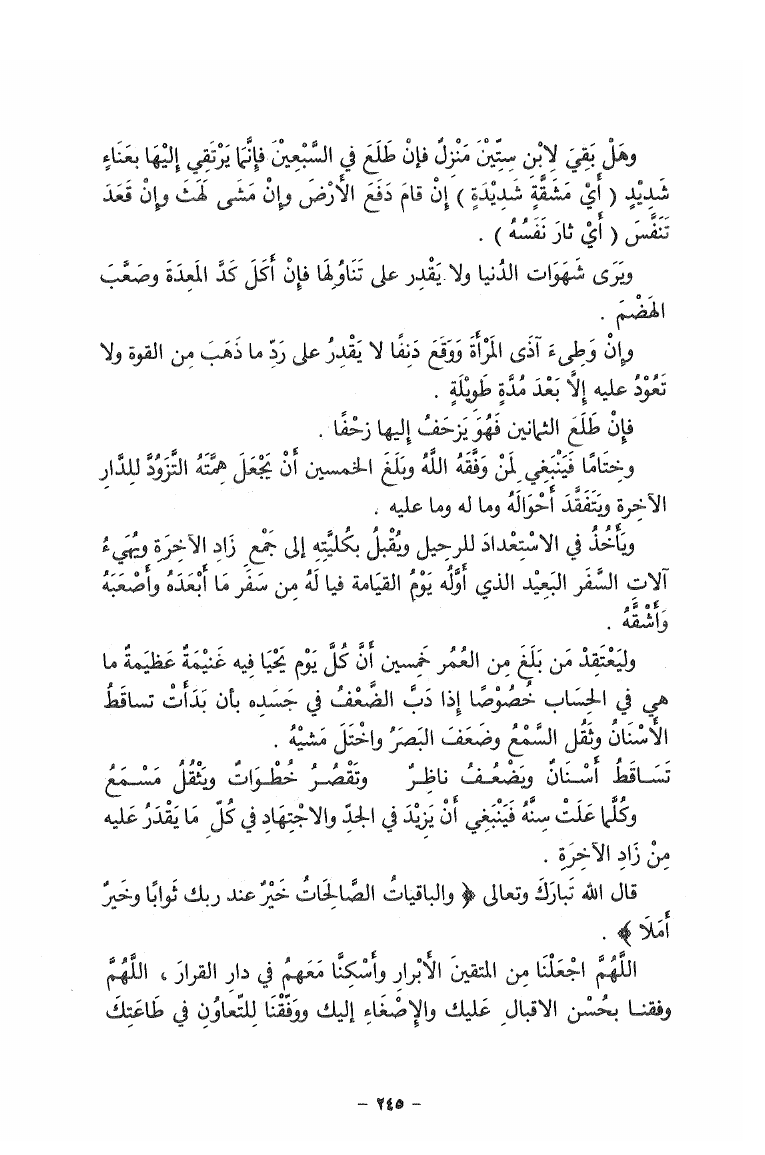 وهَلْ بَقِيَ لِابْنِ سِتِّيْنَ مَنْزِلٌ فإنْ طَلَعَ في السَّبْعِيْنَ فإِنَّمَا يَرْتَقِي إِلَيْهَا بعَنَاءٍ
شَدِيْدٍ ( أَيْ مَشَقَّةٍ شَدِيْدَةٍ ) إِنْ قامَ دَفَعَ الأَرْضَ وإِنْ مَشَى لَهَثَ وإِنْ قَعَدَ
تَنَفَّسَ ( أَيْ ثارَ نَفَسُهُ ) .
ويَرَى شَهَوَات الدُنيا ولا يَقْدِر على تَنَاوُلِهَا فإِنْ أَكَلَ كَدَّ المَعِدَةَ وصَعَّبَ
الهَضْمَ .
وإِنْ وَطِىءَ آذَى المَرْأَةَ وَوَقَعَ دَنِفًا لا يَقْدِرُ على رَدِّ ما ذَهَبَ مِن القوة ولا
تَعُوْدُ عليه إِلَّا بَعْدَ مُدَّةٍ طَوِيْلَةٍ .
فإِنْ طَلَعَ الثمانين فَهُوَ يَزحَفُ إليها زحْفًا .
وخِتَامًا فَيَنْبَغِي لِمَنْ وَفَّقَهُ اللَّهُ وبَلَغَ الخمسين أَنْ يَجْعَلَ هِمَّتَهُ التَّزَوُدَّ للدَّارِ
الآخِرةِ ويَتَفَقَّدَ أَحْوَالَهُ وما له وما عليه .
ويَأْخُذُ في الاسْتِعْدادَ للرحِيل ويُقْبِلُ بكُليَّتِهِ إلى جَمْعِ زَادِ الآخِرَةِ ويُهَيءُ
آلاتِ السَّفَر البَعِيْد الذي أَوَّلُه يَوْمُ القيَامة فيا لَهُ مِن سَفَر مَا أَبْعَدَه وأَصْعَبَهُ
وَأَشْقَّهُ .
وليَعْتَقِدْ مَن بَلَغَ مِن العُمُر خَمِسين أَنَّ كُلَّ يَوْم يَحْيَا فيه غَنِيْمَةٌ عَظِيَمةٌ ما
هي في الحِسَاب خُصُوْصًا إذا دَبَّ الضَّعْفُ في جَسَدِه بأن بَدَأَتْ تساقَطُ
الأَسْنَانُ وثَقُل السَّمْعُ وضَعَفَ البَصَرُ واخْتَلَ مَشيْهُ .
تَسَـاقَطُ أَسْـنَانٌ ويَضْعُـفُ ناظِـرٌ وتَقْصُـرُ خُطْـوَاتٌ ويَثْقُلُ مَسْـمَعُ
وكُلَّما عَلَتْ سِنَّهُ فَيَنْبَغِي أَنْ يَزِيْدَ في الجدِّ والاجْتِهَادِ في كُلِّ مَا يَقْدَرُ عَليه
مِنْ زَادِ الآخِرَةِ .
قال الله تَبارَكَ وتعالى ﴿ والباقياتُ الصَّالِحَاتُ خَيْرٌ عند ربك ثَوابًا وخَيرٌ
أَمَلًا ﴾ .
اللَّهُمَّ اجْعَلْنَا مِن المتقينَ الأَبْرارِ وأَسْكِنَّا مَعَهمُ في دارِ القرارَ ، اللَّهُمَّ
وفقنـا بحُسْنِ الاقبالِ عَليك والإِصْغَاءِ إليك ووَفّقْنَا لِلتَّعاوُنِ في طَاعَتِكَ
– ٢٤٥ –